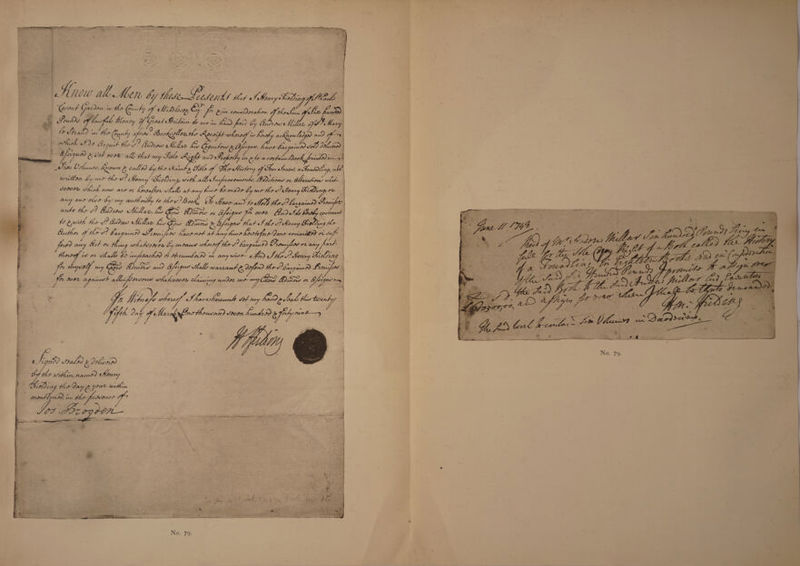 Know all Men by these Presents that I Henry Fielding of St Pauls
Covent Garden in the County of Middlesex Esqr for & in consideration of the Sum of Six hundred
Pounds of lawfull Money of Great Britain to me in hand paid by Andrew Millar of St Mary
le Strand in the County aforesd Bookseller the Receipt whereof is hereby acknowledged and of
which I do Acquit the sd Andrew Millar his Executors & Assigns, have bargained sold delivered
assigned & set over all that my Title Right and Property in & to a certain Book printed in
Six Volumes, known & called by the Name & Title of The History of Tom Jones a Foundling
written by me the sd Henry Fielding with all Improvements Additions or Alterations
which now are or hereafter shall at any time be made by me the sd Henry Fielding or
any one else by my authority to the sd Book To Have and to Hold the sd bargained Premises
unto the sd Andrew Millar his Admrs or Assigns for ever And I do hereby covenant
to & with the sd Andrew Millar his Admrs & Assigns that I the sd Henry Fielding the
Author of the sd bargained Premises have not at any time heretofore done committed or
suffered any Act or thing whatsoever by means whereof the sd bargained Premises or any part
thereof is or shall be impeached or incumbered in any wise And I the sd Henry Fielding
for myself my Admrs and Assigns shall warrant & defend the sd bargained Premises
for ever against all persons whatsoever claiming under me my Admrs or Assigns
In Witness whereof I have hereunto set my hand & seal this twenty
fifth day of March One thousand seven hundred & forty nine
H Fielding
Signed sealed & delivered
by the within named Henry
Fielding the day & year within
mentioned in the presence of
Jos Brogden
No. 79.
June 11 1748
Recd of Mr Andrew Millar Six hundred Pounds being in
full for the sole Copy Right of a Book called the History
of a Foundling in Eighteen Books and in Consideration
of the said Six Hundred Pounds I promise to assign over
the said Book to the said Andrew Millar his Executors
and assigns for ever when I shall be thereto demanded
Hen: Fielding
The said work to contain Six Volumes in Duodecimo
No. 79.